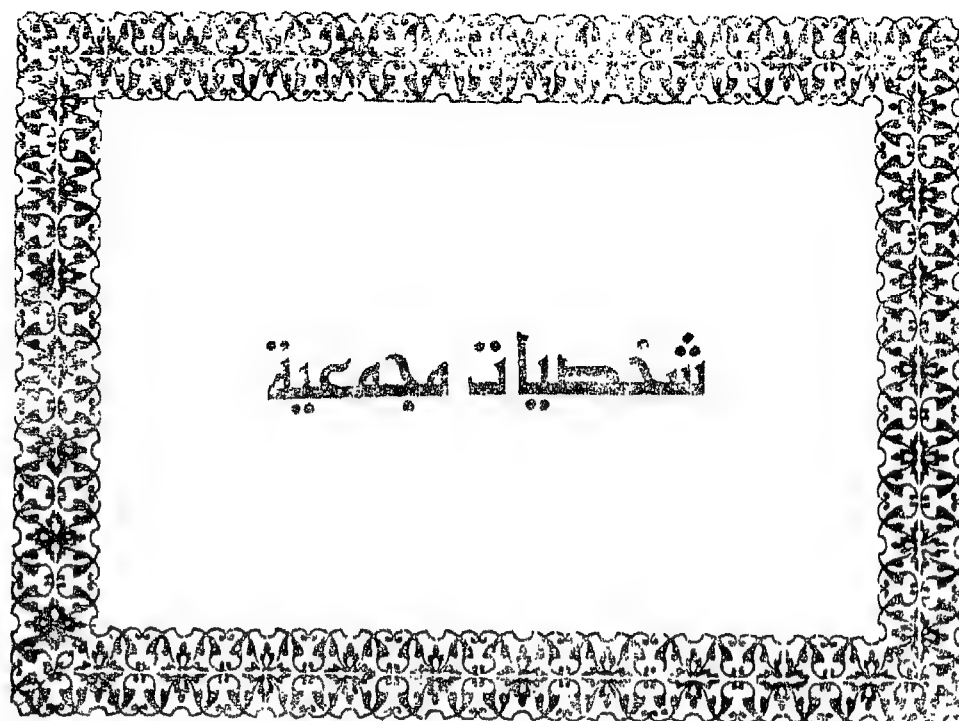 شخصيات مجمعية